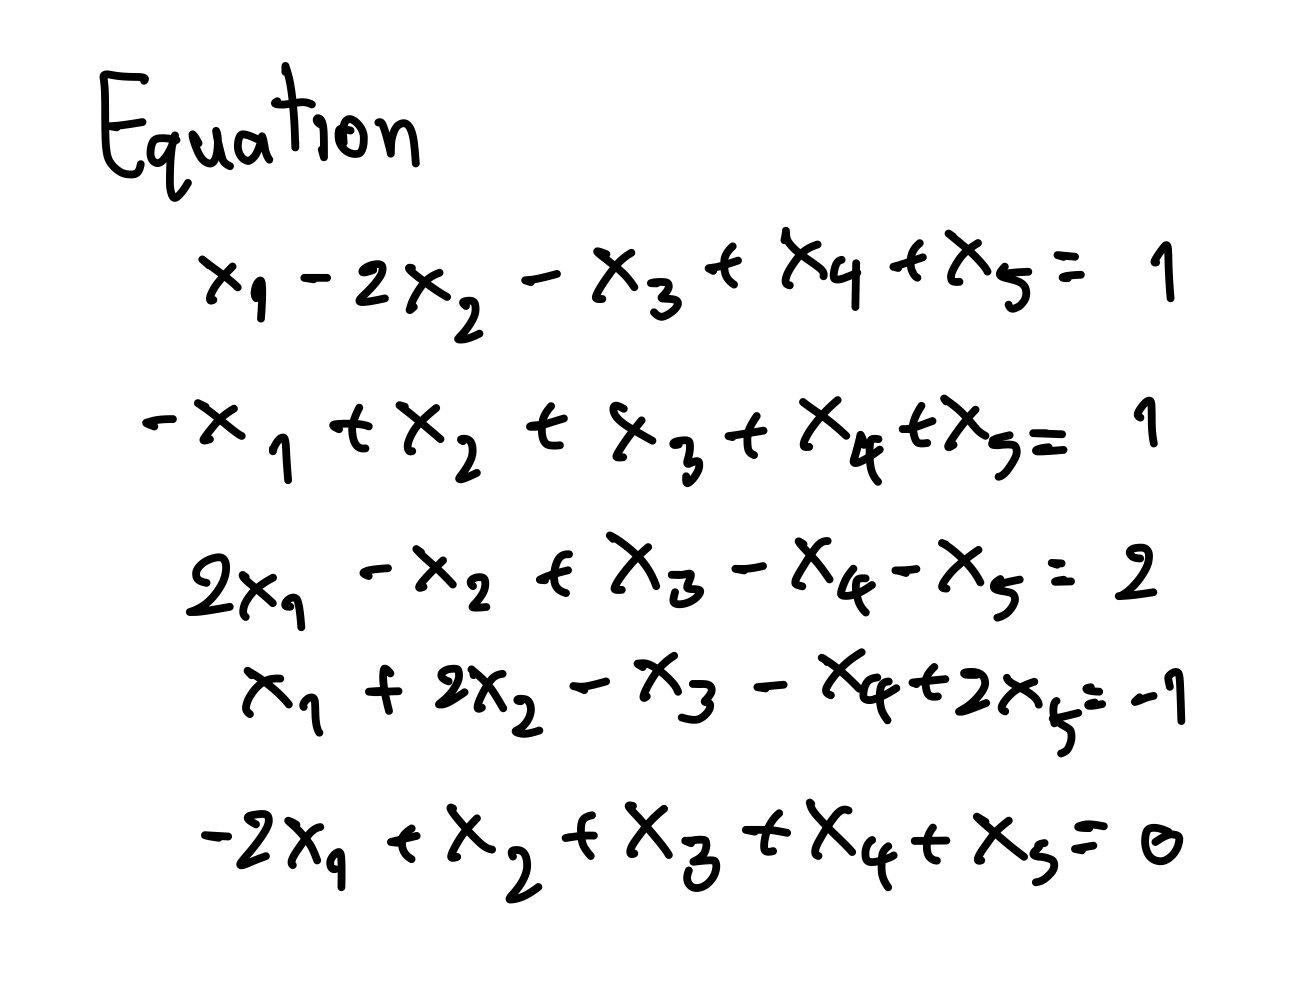 Equation
x₁ - 2x₂ - x₃ + x₄ + x₅ = 1
-x₁ + x₂ + x₃ + x₄ + x₅ = 1
2x₁ - x₂ + x₃ - x₄ - x₅ = 2
x₁ + 2x₂ - x₃ - x₄ + 2x₅ = -1
-2x₁ + x₂ + x₃ + x₄ + x₅ = 0